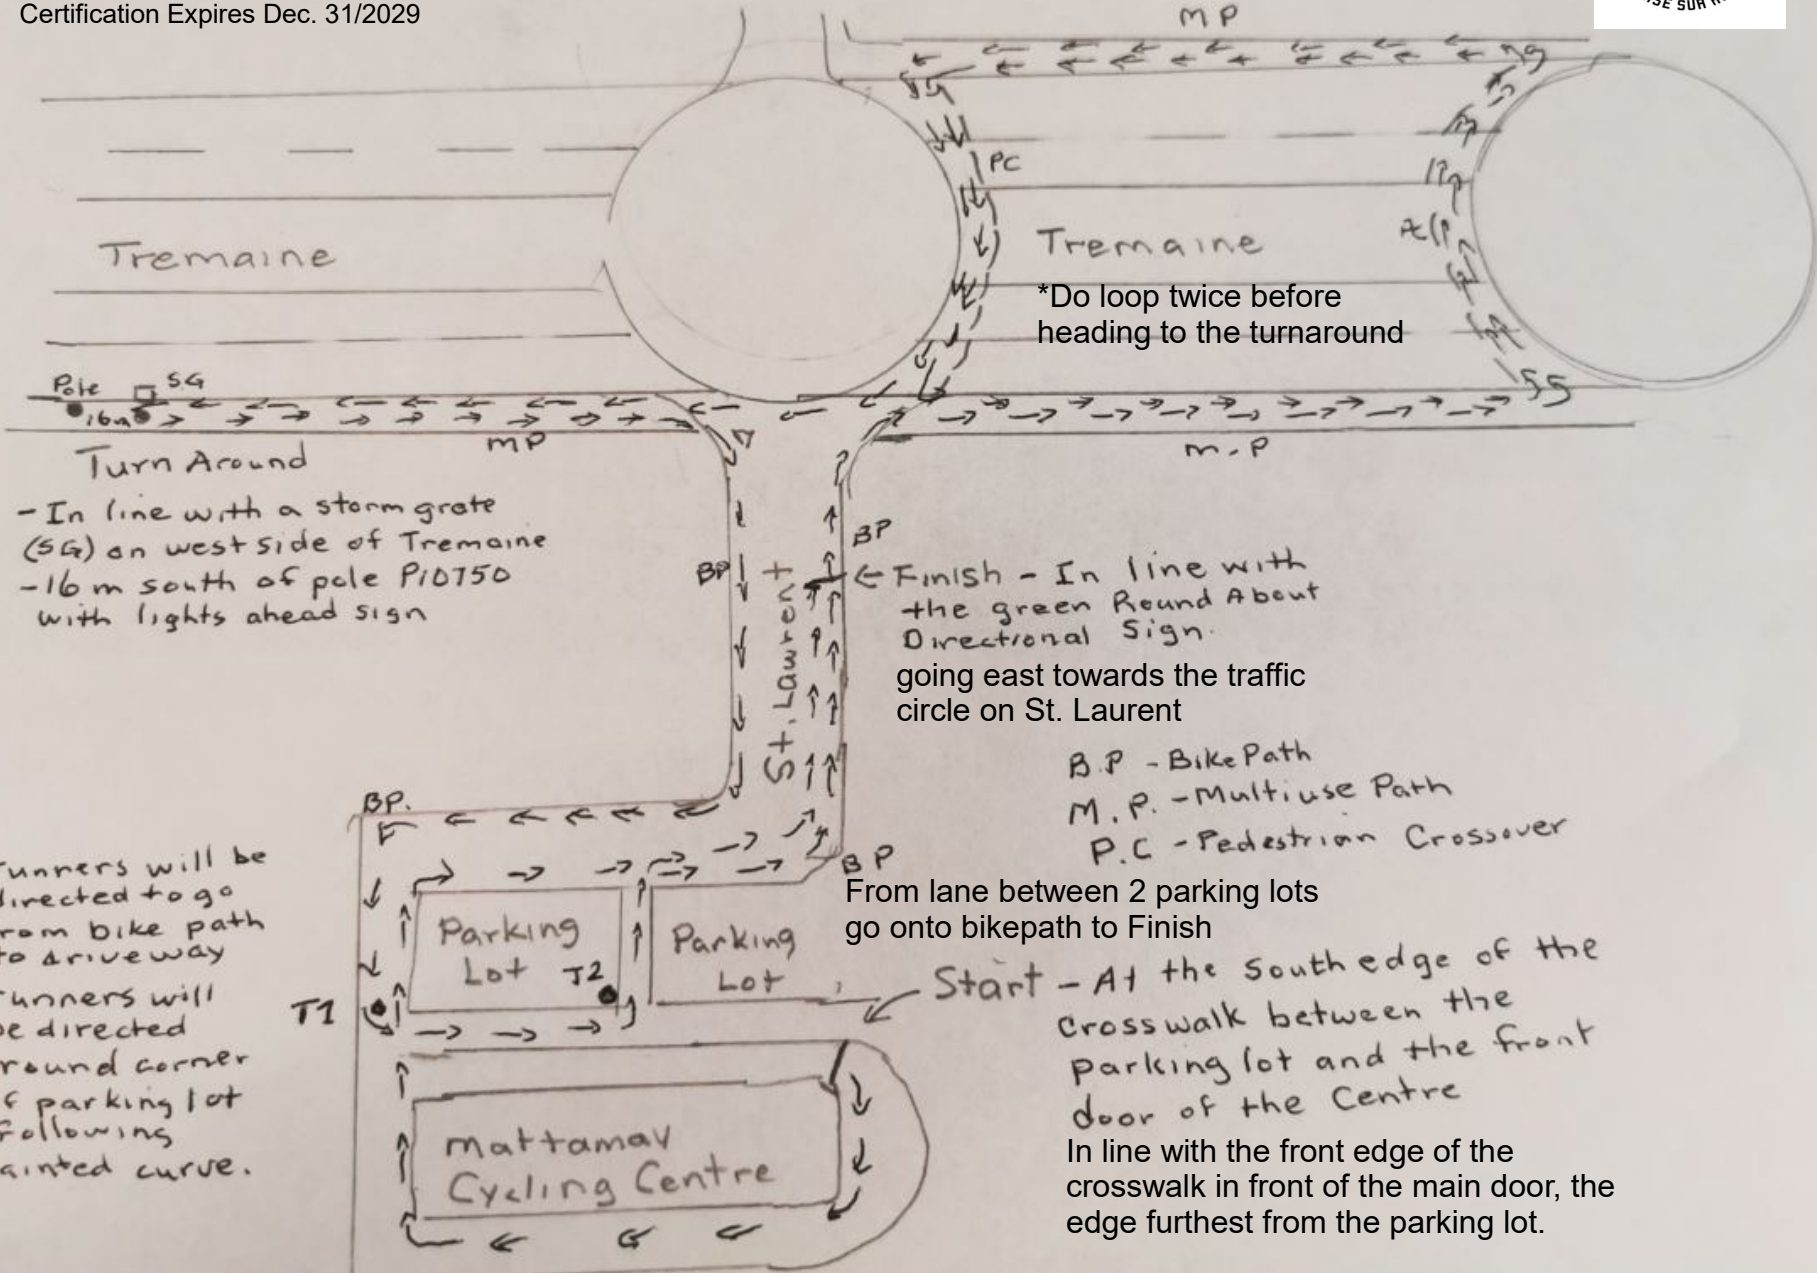 Certification Expires Dec. 31/2029
MP
PC
Tremaine
Tremaine
*Do loop twice before
heading to the turnaround
Pole
SG
16m
MP
M.P
Turn Around
- In line with a storm grate
(SG) on west side of Tremaine
- 16 m south of pole P10750
with lights ahead sign
BP
BP
St. Laurent
← Finish - In line with
the green Round About
Directional Sign.
going east towards the traffic
circle on St. Laurent
B.P - Bike Path
M.P. - Multiuse Path
P.C - Pedestrian Crossover
BP.
BP
From lane between 2 parking lots
go onto bikepath to Finish
unners will be
directed to go
rom bike path
to driveway
unners will
be directed
round corner
f parking lot
following
ainted curve.
Parking
Lot
T2
Parking
Lot
T1
Start - At the south edge of the
crosswalk between the
parking lot and the front
door of the Centre
In line with the front edge of the
crosswalk in front of the main door, the
edge furthest from the parking lot.
Mattamay
Cycling Centre